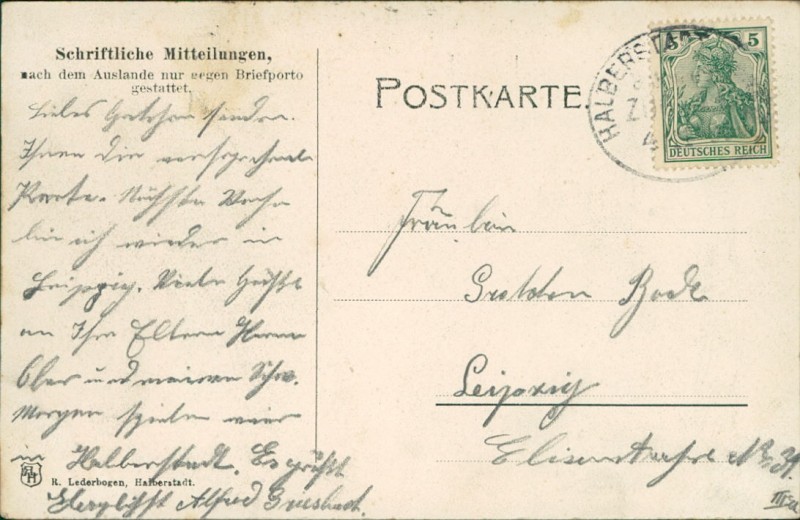 Schriftliche Mitteilungen,
nach dem Auslande nur gegen Briefporto
gestattet.
POSTKARTE.
HALBERSTADT
5 5
DEUTSCHES REICH
Liebes Gretchen sende
Ihnen die versprochene
Karte. Nächste Woche
bin ich wieder in
Leipzig. Viele Grüße
an Ihre Eltern Herrn
und meinen
Morgen spielen wir
in Halberstadt. Es grüßt
Herzlichst Alfred
Fräulein
Gretchen Bode
Leipzig
Elisenstraße No 31.
R. Lederbogen, Halberstadt.